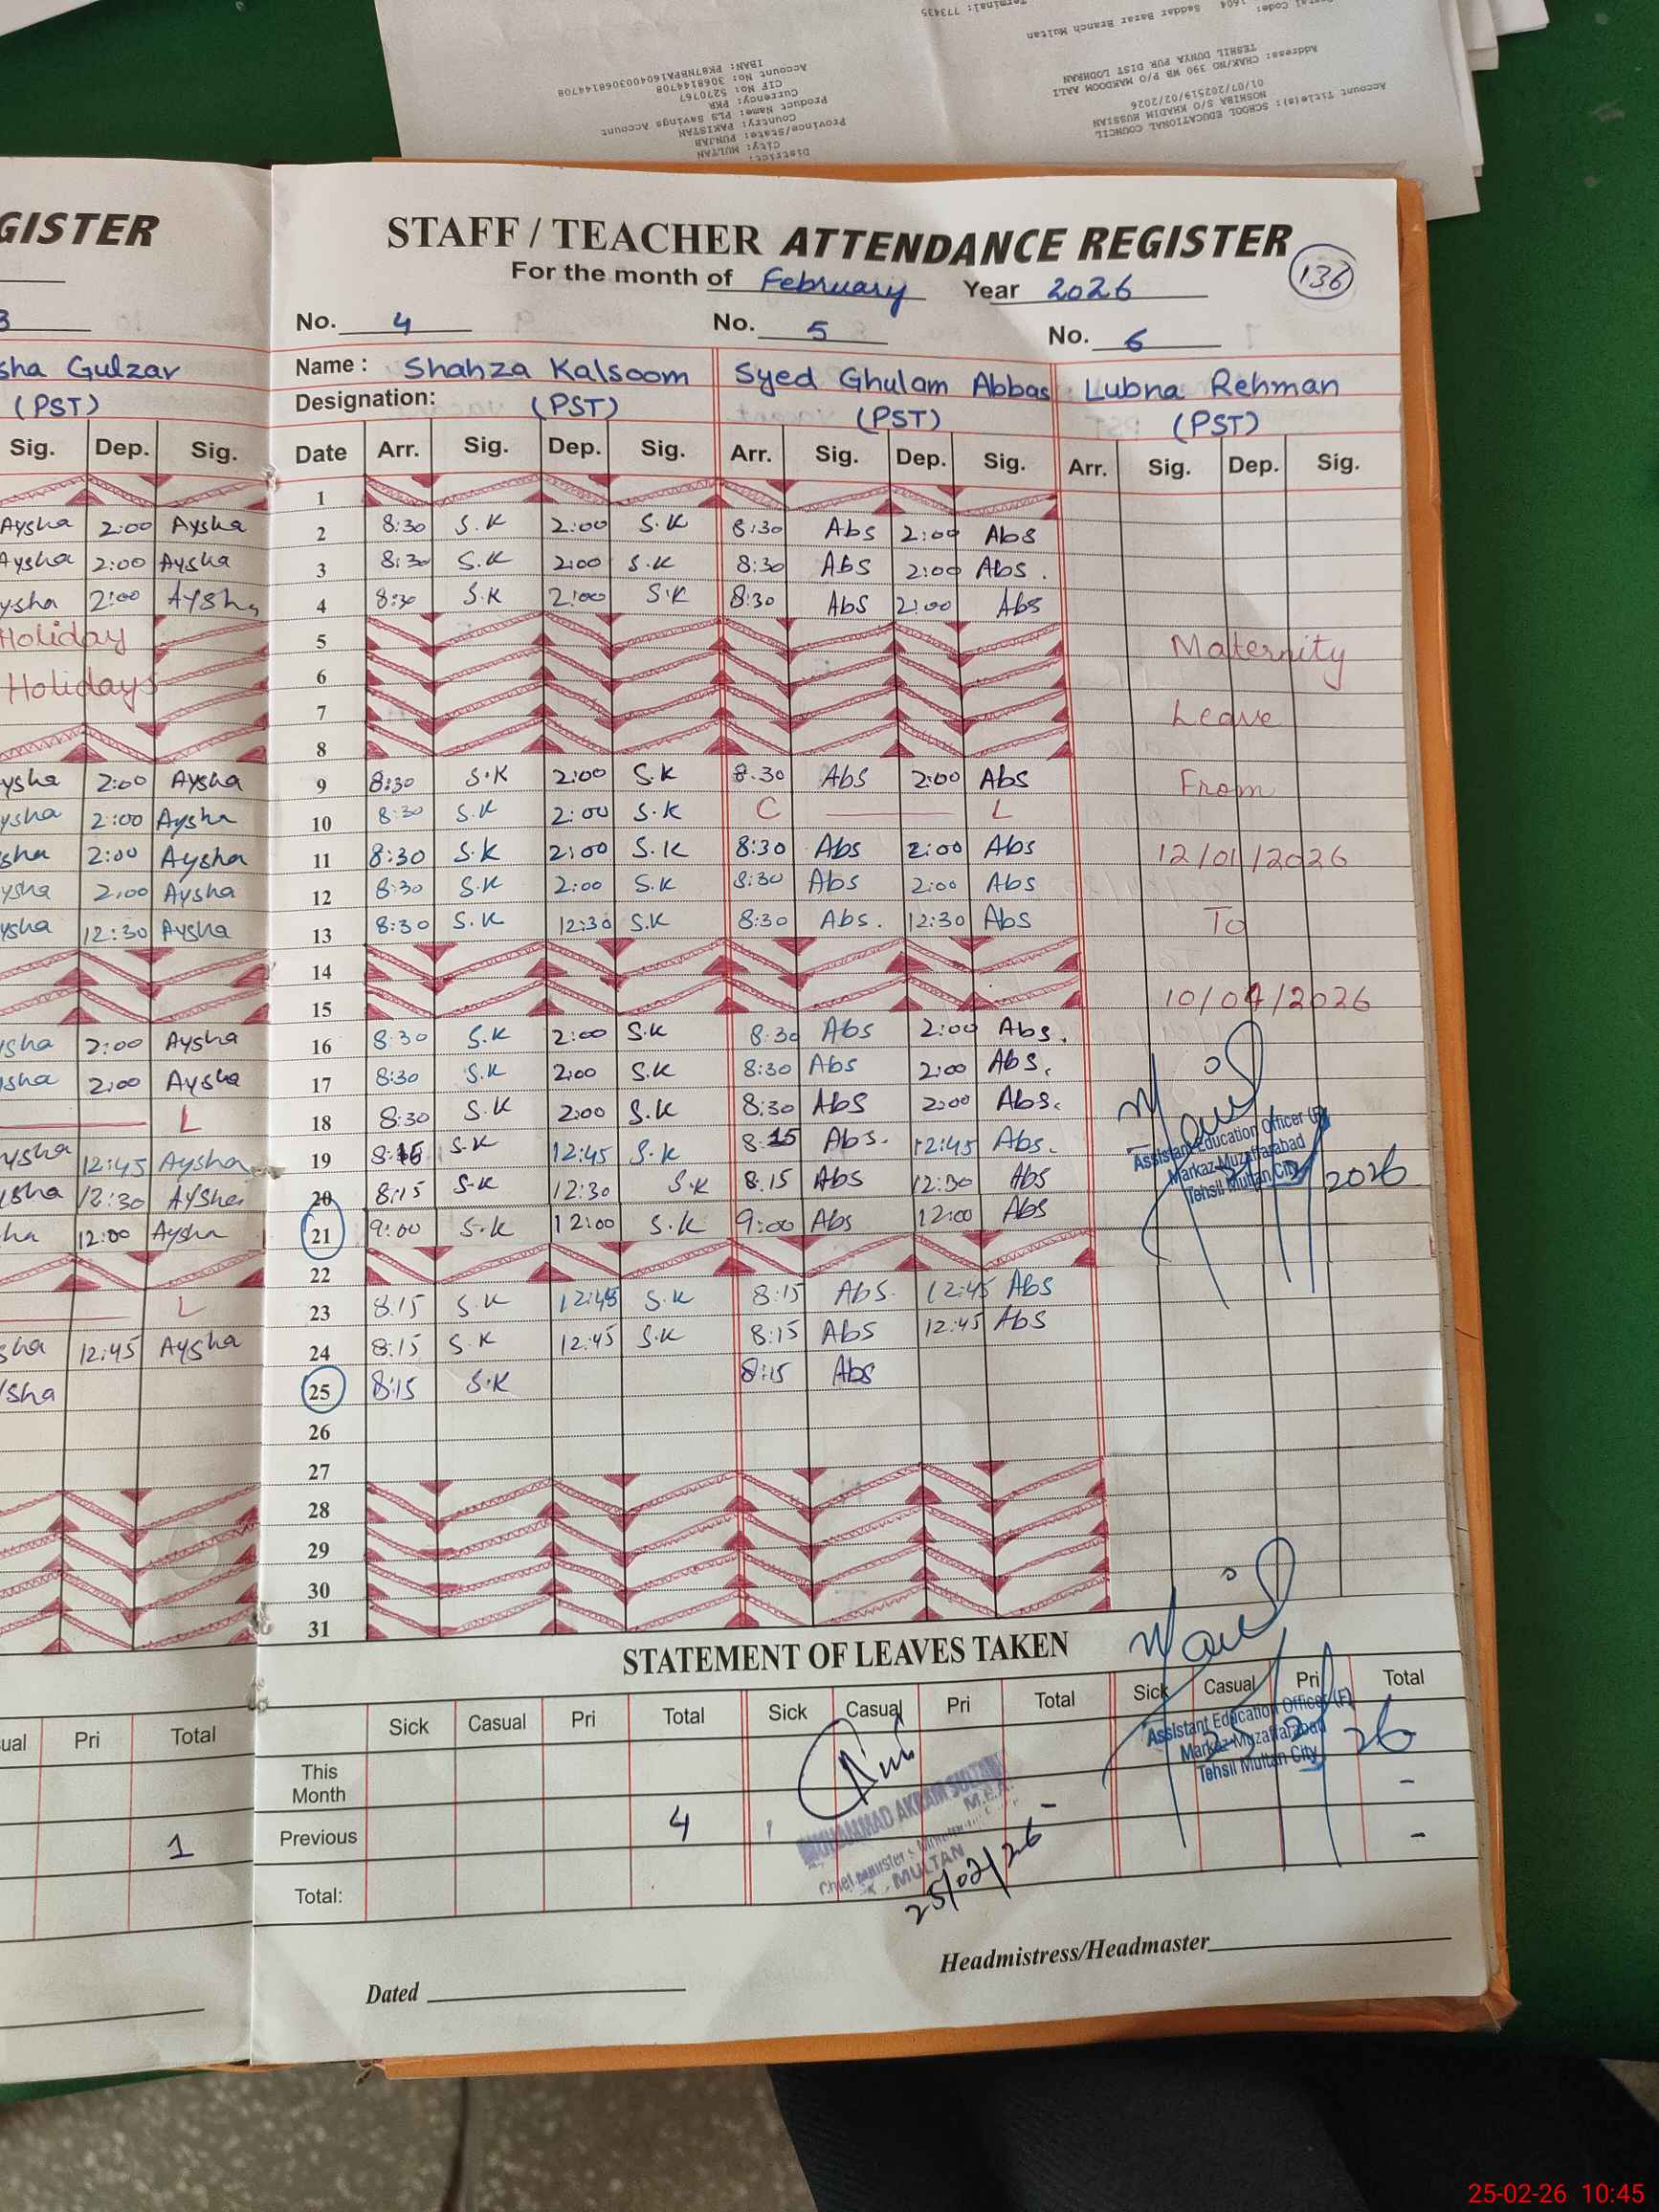 Terminal: 773435
Saddar Bazar Branch Multan
Address: CHAK/NO 390 WB P/O MAKDOOM AALI
TESHIL DUNYA PUR DIST LODHRAN
01/07/202519/02/2026
NOSHIBA S/O KHADIM HUSSIAN
Account Title(s): SCHOOL EDUCATIONAL COUNCIL
IBAN: PK87NBPA1604003068144708
Account No: 3068144708
CIF No: 5270767
Currency: PKR
Product Name: PLS Savings Account
Country: PAKISTAN
Province/State: PUNJAB
City: MULTAN
District:
GISTER
STAFF / TEACHER ATTENDANCE REGISTER
For the month of February Year 2026 136
3 No. 4 No. 5 No. 6
sha Gulzar Name : Shahza Kalsoom Syed Ghulam Abbas Lubna Rehman
(PST) Designation: (PST) (PST) (PST)
Sig. Dep. Sig. Date Arr. Sig. Dep. Sig. Arr. Sig. Dep. Sig. Arr. Sig. Dep. Sig.
1
Aysha 2:00 Aysha 2 8:30 S.K 2:00 S.K 8:30 Abs 2:00 Abs
Aysha 2:00 Aysha 3 8:30 S.K 2:00 S.K 8:30 Abs 2:00 Abs.
ysha 2:00 Aysha 4 8:30 S.K 2:00 S.K 8:30 Abs 2:00 Abs
Holiday 5 Maternity
Holidays 6
7 Leave
8
ysha 2:00 Aysha 9 8:30 S.K 2:00 S.K 8.30 Abs 2:00 Abs From
ysha 2:00 Aysha 10 8:30 S.K 2:00 S.K C L
sha 2:00 Aysha 11 8:30 S.K 2:00 S.K 8:30 Abs 2:00 Abs 12/01/2026
ysha 2:00 Aysha 12 8:30 S.K 2:00 S.K 8:30 Abs 2:00 Abs
ysha 12:30 Aysha 13 8:30 S.K 12:30 S.K 8:30 Abs. 12:30 Abs To
14
15 10/04/2026
ysha 2:00 Aysha 16 8:30 S.K 2:00 S.K 8:30 Abs 2:00 Abs.
sha 2:00 Aysha 17 8:30 S.K 2:00 S.K 8:30 Abs 2:00 Abs.
L 18 8:30 S.K 2:00 S.K 8:30 Abs 2:00 Abs.
ysha 12:45 Aysha 19 8:15 S.K 12:45 S.K 8:15 Abs. 12:45 Abs.
Assistant Education Officer (F)
Markaz Muzaffarabad
Tehsil Multan City
2026
ysha 12:30 Aysha 20 8:15 S.K 12:30 S.K 8.15 Abs 12:30 Abs
ha 12:00 Aysha 21 9:00 S.K 12:00 S.K 9:00 Abs 12:00 Abs
22
L 23 8:15 S.K 12:45 S.K 8:15 Abs. 12:45 Abs
sha 12:45 Aysha 24 8:15 S.K 12:45 S.K 8:15 Abs 12:45 Abs
ysha 25 8:15 S.K 8:15 Abs
26
27
28
29
30
31
STATEMENT OF LEAVES TAKEN
ual Pri Total Sick Casual Pri Total Sick Casual Pri Total Sick Casual Pri Total
Assistant Education Officer (F)
Markaz Muzaffarabad
Tehsil Multan City
26
This
Month -
1 Previous 4 - -
MUHAMMAD AKRAM SULTAN
M.E.A.
MULTAN
25/02/26
Total:
Headmistress/Headmaster
Dated
25-02-26 10:45